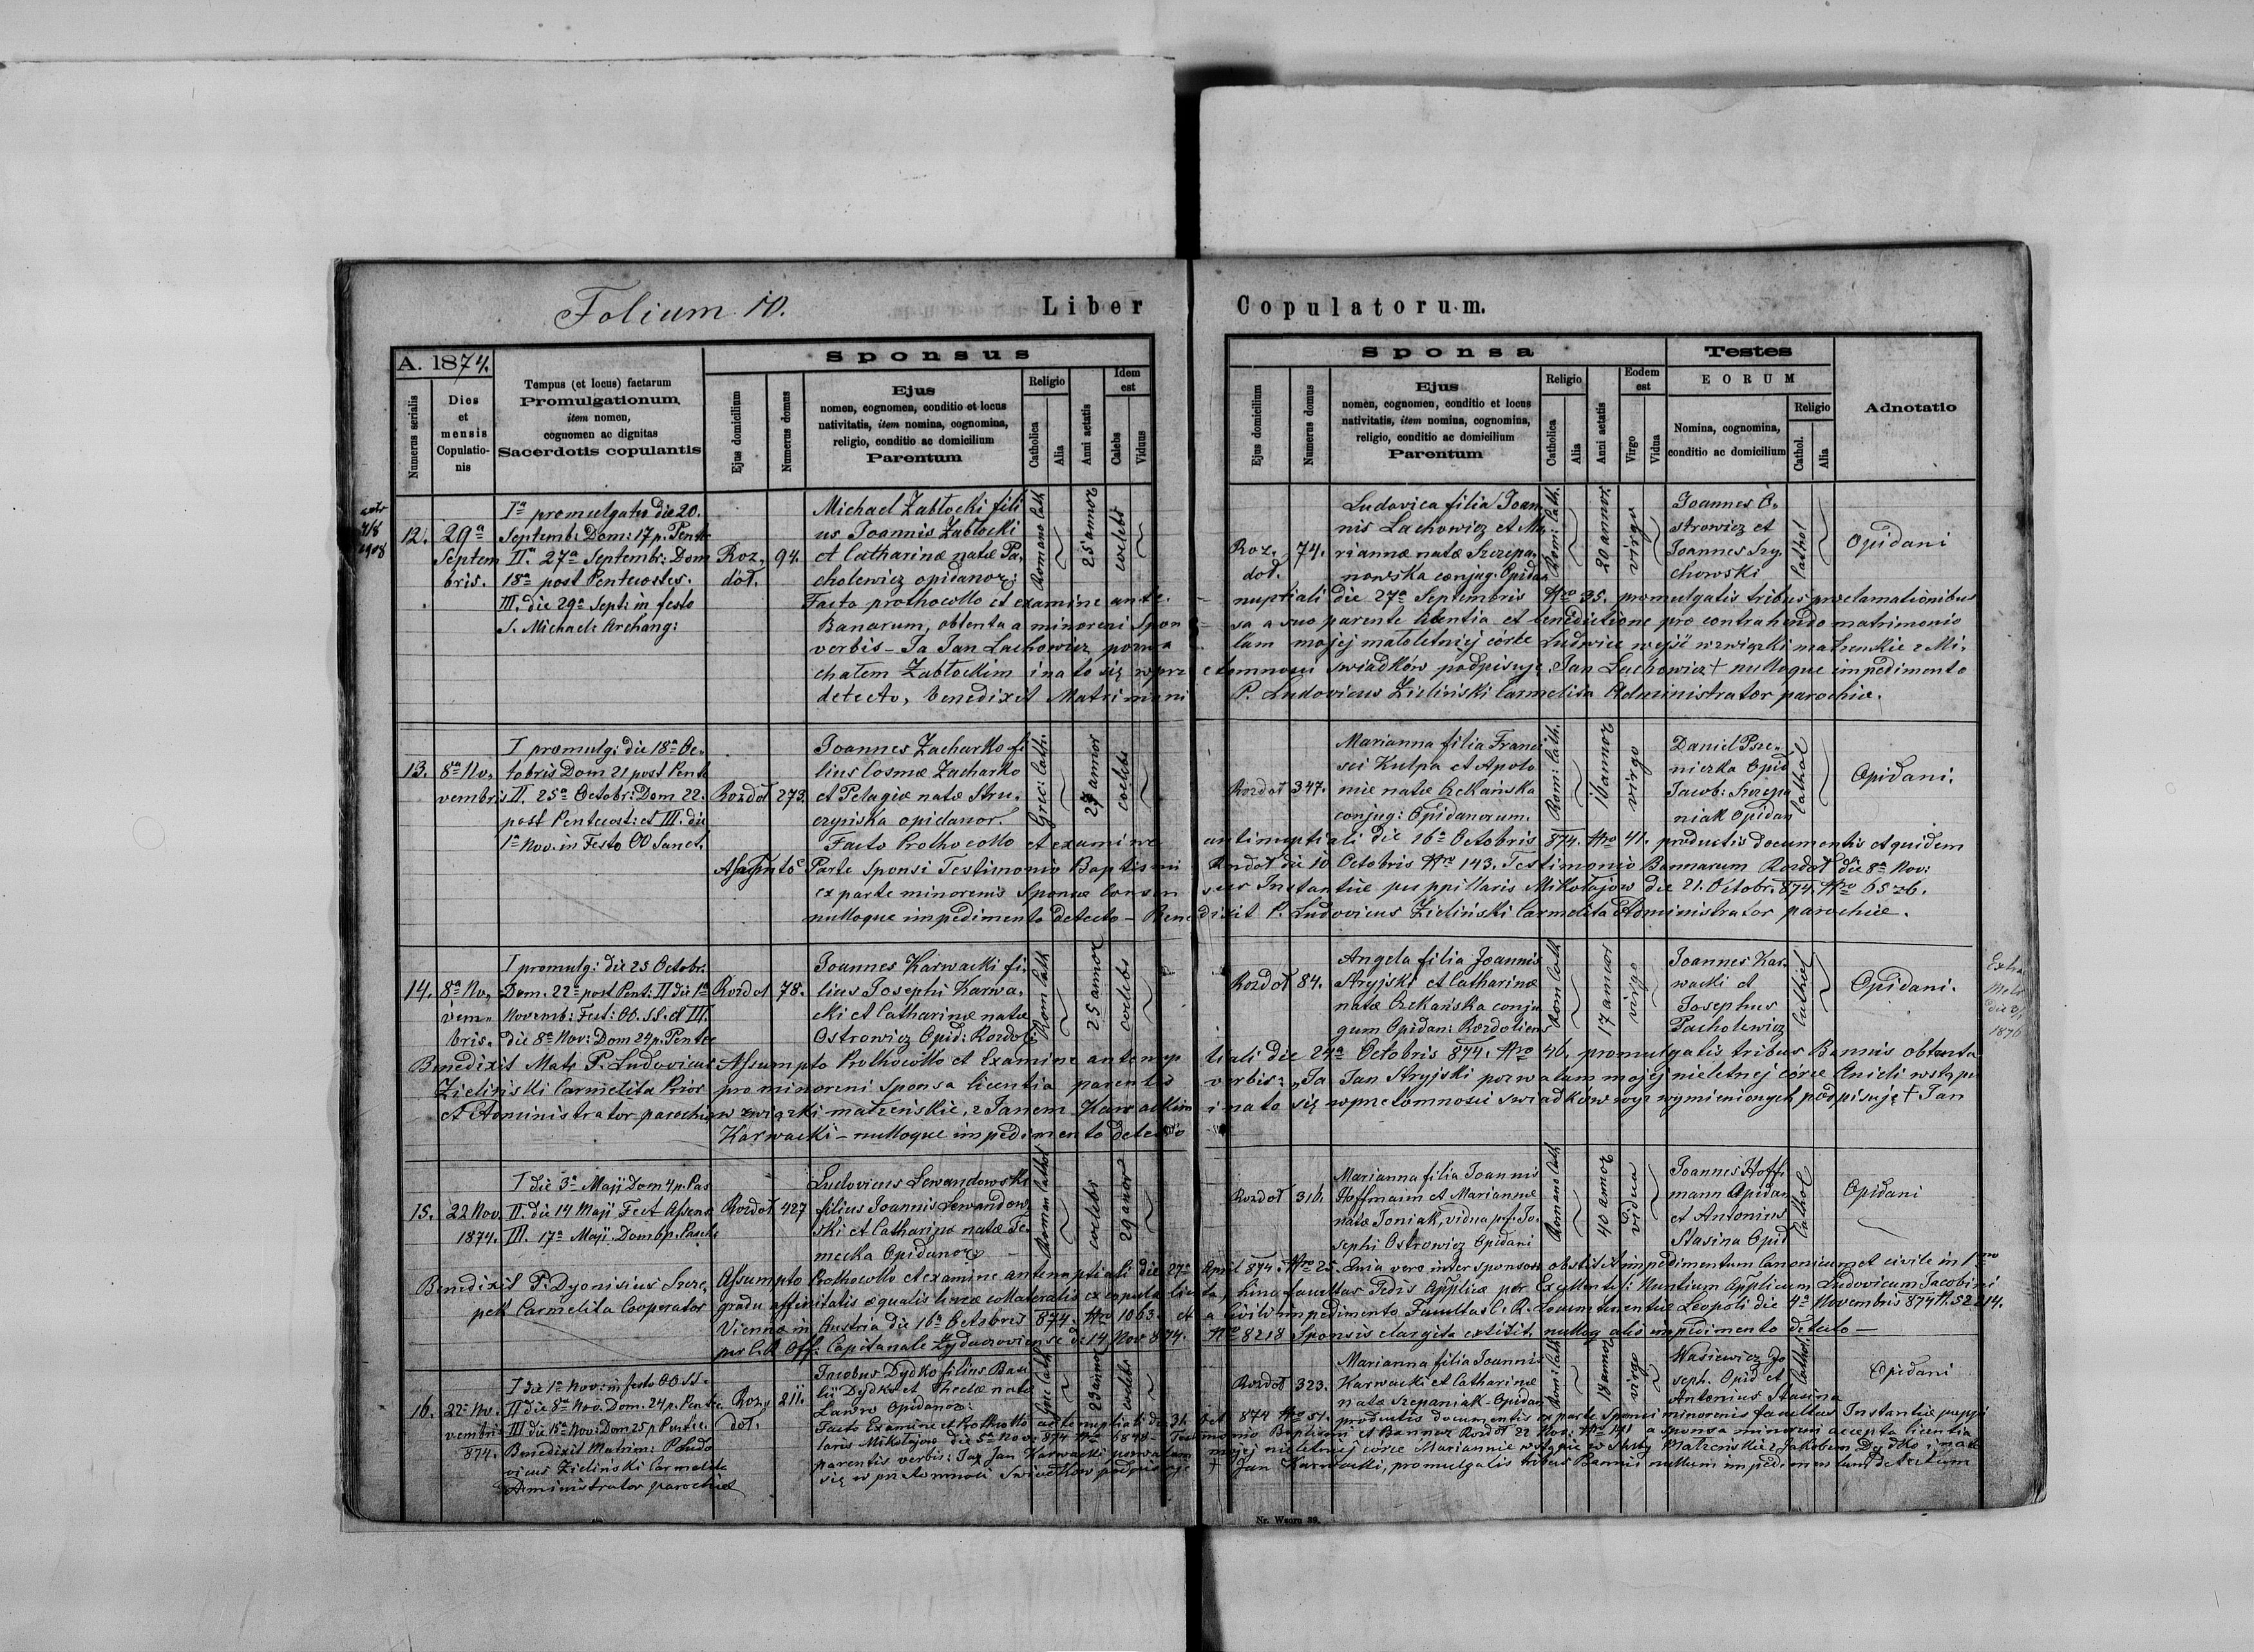 Folium 10.
Liber Copulatorum.
A. 1874.
Sponsus
Numerus serialis
Dies et mensis Copulationis
Tempus (et locus) factarum
Promulgationum,
item nomen,
cognomen ac dignitas
Sacerdotis copulantis
Ejus domicilium
Numerus domus
Ejus
nomen, cognomen, conditio et locus
nativitatis, item nomina, cognomina,
religio, conditio ac domicilium
Parentum
Religio
Catholica
Alia
Anni aetatis
Idem est
Calebs
Viduus
Sponsa
Ejus domicilium
Numerus domus
Ejus
nomen, cognomen, conditio et locus
nativitatis, item nomina, cognomina,
religio, conditio ac domicilium
Parentum
Religio
Catholica
Alia
Anni aetatis
Eodem est
Virgo
Vidua
Testes
EORUM
Nomina, cognomina,
conditio ac domicilium
Religio
Cathol.
Alia
Adnotatio
7/8
1908
12.
29a
Septem
bris.
Ia promulgatio die 20.
Septemb: Dom: 17 p. Pente
IIa. 27a Septembr: Dom
18a post Pentecostes.
III. die 29a Sept: in festo
S. Michael: Archang:
Roz,
doł.
94.
Michael Zabłocki fili
us Joannis Zabłocki
et Catharinæ natæ Pa,
cholewicz opidanor:
Romano Cath.
25 annor
coelebs
Roz.
doł.
74.
Ludovica filia Joan
nis Lachowicz et Ma
riannæ natæ Szczepa,
nowska conjug. Opidan
Rom: Cath.
20 annor.
virgo
Joannes O,
strowicz et
Joannes Szy,
chowski
Cathol
Opidani
Facto prothocollo et examine ante, nuptiali die 27a Septembris Nro 35. promulgatis tribus proclamationibus
Banorum, obtenta a minoreni Spon sa a suo parente licentia et benedictione pro contrahendo matrimonio
verbis - Ja Jan Lachowicz pozwa lam mojej małoletniej córce Ludwice wejść w związki małżeńskie z Mi,
chałem Zabłockim i na to się w prz etomności świadków podpisuję Jan Lachowicz + nulloque impedimento
detecto, benedixit Matrimoni P. Ludovicus Zieliński Carmelita Administrator parochiæ.
13.
8a No,
vembris
I promulg: die 18a Oc,
tobris Dom 21 post Pente
II. 25a Octobr: Dom 22.
post Pentecost: et III. die
1a Nov. in Festo OO Sanct.
Rozdoł
273.
Joannes Zacharko fi
lius Cosmæ Zacharko
et Pelagiæ natæ Stru,
czyńska opidanor.
Grec: Cath:
27 annor
coelebs
Rozdoł
347.
Marianna filia Franci
sci Kulpa et Apolo
niæ natæ Rekańska
conjug: Opidanorum.
Rom: Cath.
16 annor
virgo
Daniel Psze,
niczka Opid
Jacob: Szczepa
niak Opidan
Cathol
Opidani.
Facto Prothocollo et examine antinuptiali die 16a Octobris 874. Nro 41. productis documentis et quidem
Parte Sponsi Testimonio Baptismi Rozdoł die 10 Octobris Nro 143. Testimonio Bannorum Rozdoł die 8a Nov:
ex parte minorenis Sponsæ Consen sus Instantiæ puppillaris Mikołajow die 21. Octobr. 874. Nro 6526.
nulloque impedimento detecto - Bene dixit P. Ludovicus Zieliński Carmelita Administrator parochiæ.
14.
8a No,
vem,
bris.
I promulg: die 25 Octobr:
Dom. 22a post Pent: II die 1a
Novemb: Fest: OO. SS: et III.
die 8a Nov: Dom 24 p. Pentec
Rozdoł
78.
Joannes Karwacki fi,
lius Josephi Karwa,
cki et Catharinæ natæ
Ostrowicz Opid: Rozdoł
Rom Cath
25 annor
coelebs
Rozdoł
84.
Angela filia Joannis
Stryjski et Catharinæ
natæ Rekańska conju
gum Opidan: Rozdoliens
Rom Cath
17 annor
virgo
Joannes Kar,
wacki et
Josephus
Pacholewicz
Cathol
Opidani.
1876
Benedixit Matr P. Ludovicus
Zieliński Carmelita Prior
et Administrator parochiæ
Assumpto Prothocollo et Examine antenup tiali die 24a Octobris 874. Nro 46. promulgatis tribus Bannis obtenta
pro minoreni Sponsa licentia parentis verbis: „Ja Jan Stryjski pozwalam mojej nieletnej córce Anieli wstąpić
w związki małżeńskie, z Janem Karwackim i na to się w przetomności świadków wyż wymienionych podpisuję + Jan
Karwacki - nulloque impedimento detecto
15.
22 Nov.
1874.
I die 3a Maji Dom 4 p. Pas
II. die 14 Maji Fest Ascens
III. 17a Maji Dom 6 p. Pasch
Rozdoł
427
Ludovicus Lewandowski
filius Joannis Lewandow,
ski et Catharinæ natæ Te,
mecka Opidanor
Roman Cathol
coelebs
29 anor
Rozdoł
316.
Marianna filia Joannis
Hoffmann et Mariannæ
natæ Joniak, vidua p. f. Jo,
sephi Ostrowicz Opidani
Romano Cath
40 annor
vidua
Joannes Hoff,
mann Opidan
et Antonius
Stasina Opid
Cathol
Opidani
Benedixit P. Dyonisius Szcze,
pek Carmelita Cooperator
Assumpto Prothocollo et examine antenuptiali die 27a April 874. Nro 25. Quia vero inter sponsos obstitit impedimentum Canonicum et civile in 1mo
gradu affinitatis æqualis lineæ collateralis ex copula licita, hinc facultas Sedis Applicæ per Excellentis: Nuntium Applicum Ludovicum Jacobini
Viennæ in Austria die 16a Octobris 874. Nro 1063. et a civili impedimento Facultas C. R. Locumtenentiæ Leopoli die 4a Novembris 874 N. 52214.
per C. R. Off: Capitanale Zydaczoviense d: 14 Nov 874. Nro 8218 Sponsis elargita extitit nulloq alio impedimento detecto —
16.
22a No,
vembris
874.
I die 1a Nov: in festo OO SS.
II die 8a Nov. Dom. 24 p. Pentec
III die 15a Nov: Dom 25 p Pentec.
Benedixit Matrim: P. Ludo
vicus Zieliński Carmelita
Administrator parochiæ
Roz,
doł.
211.
Jacobus Dydko filius Basi
lii Dydko et Theclæ natæ
Lawro Opidanor:
Grec Cath
23 annor
coelebs
Rozdoł
323.
Marianna filia Joannis
Karwacki et Catharinæ
natæ Szczepaniak Opidan
Rom: Cath
18 annor
virgo
Wasiewicz Jo
seph. Opid et
Antonius Stasina
Cathol
Opidani
Facto Examine et Prothocollo antenuptiali die 31. Oct 874 Nro 51. productis documentis ex parte Sponsi minorenis facultas Instantiæ puppi
laris Mikołajow die 5a Nov: 874 Nro 6848 - Testimonio Baptismi et Bannor Rozdoł 22 Nov: Nro 141 a sponsa minoreni accepta licentia
parentis verbis: Ja Jan Karwacki pozwalam mojej nieletniej córce Mariannie wstąpić w śluby Małżeńskie z Jakobem Dydko i na to
się w przetomności świadków podpisuję + Jan Karwacki, promulgatis tribus Bannis nullum impedimentum detectum
Nr. Wzoru 39.